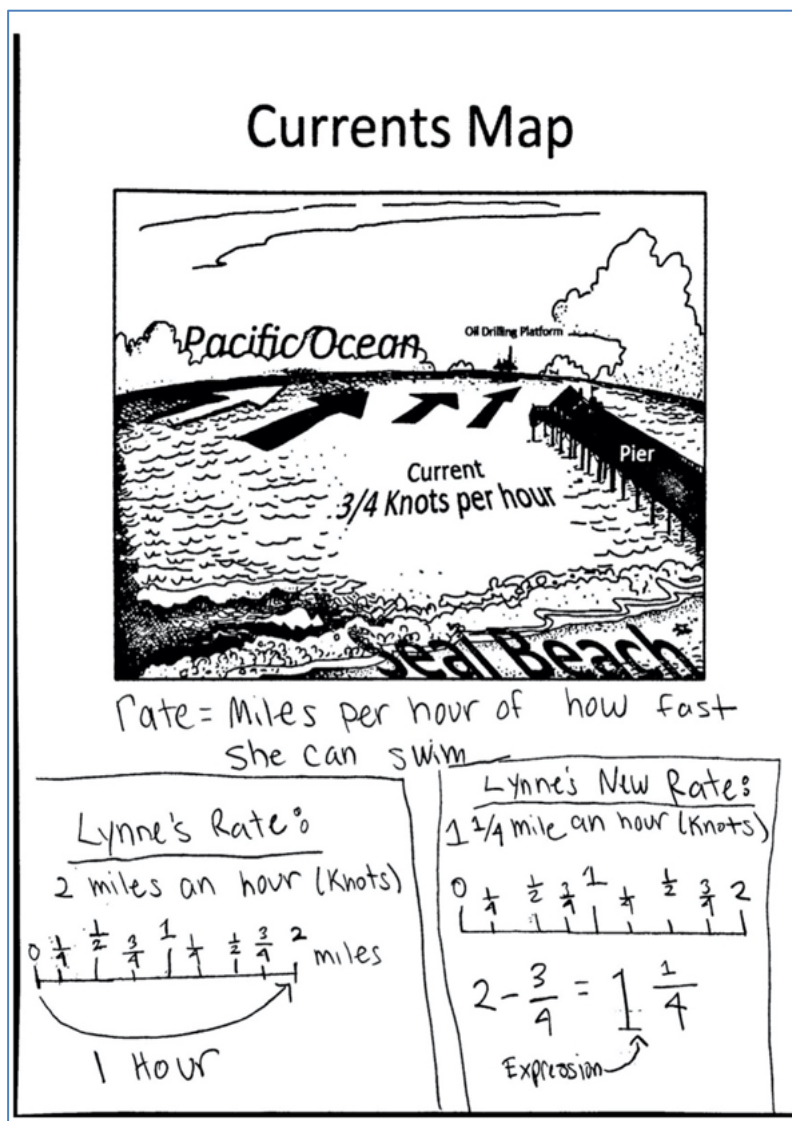 Currents Map
Pacific Ocean
Oil Drilling Platform
Pier
Current
3/4 Knots per hour
Seal Beach
rate = Miles per hour of how fast
she can swim
Lynne's Rate:
2 miles an hour (Knots)
0 1/4 1/2 3/4 1 1/4 1/2 3/4 2 miles
1 Hour
Lynne's New Rate:
1 1/4 mile an hour (Knots)
0 1/4 1/2 3/4 1 1/4 1/2 3/4 2
2 - 3/4 = 1 1/4
Expression